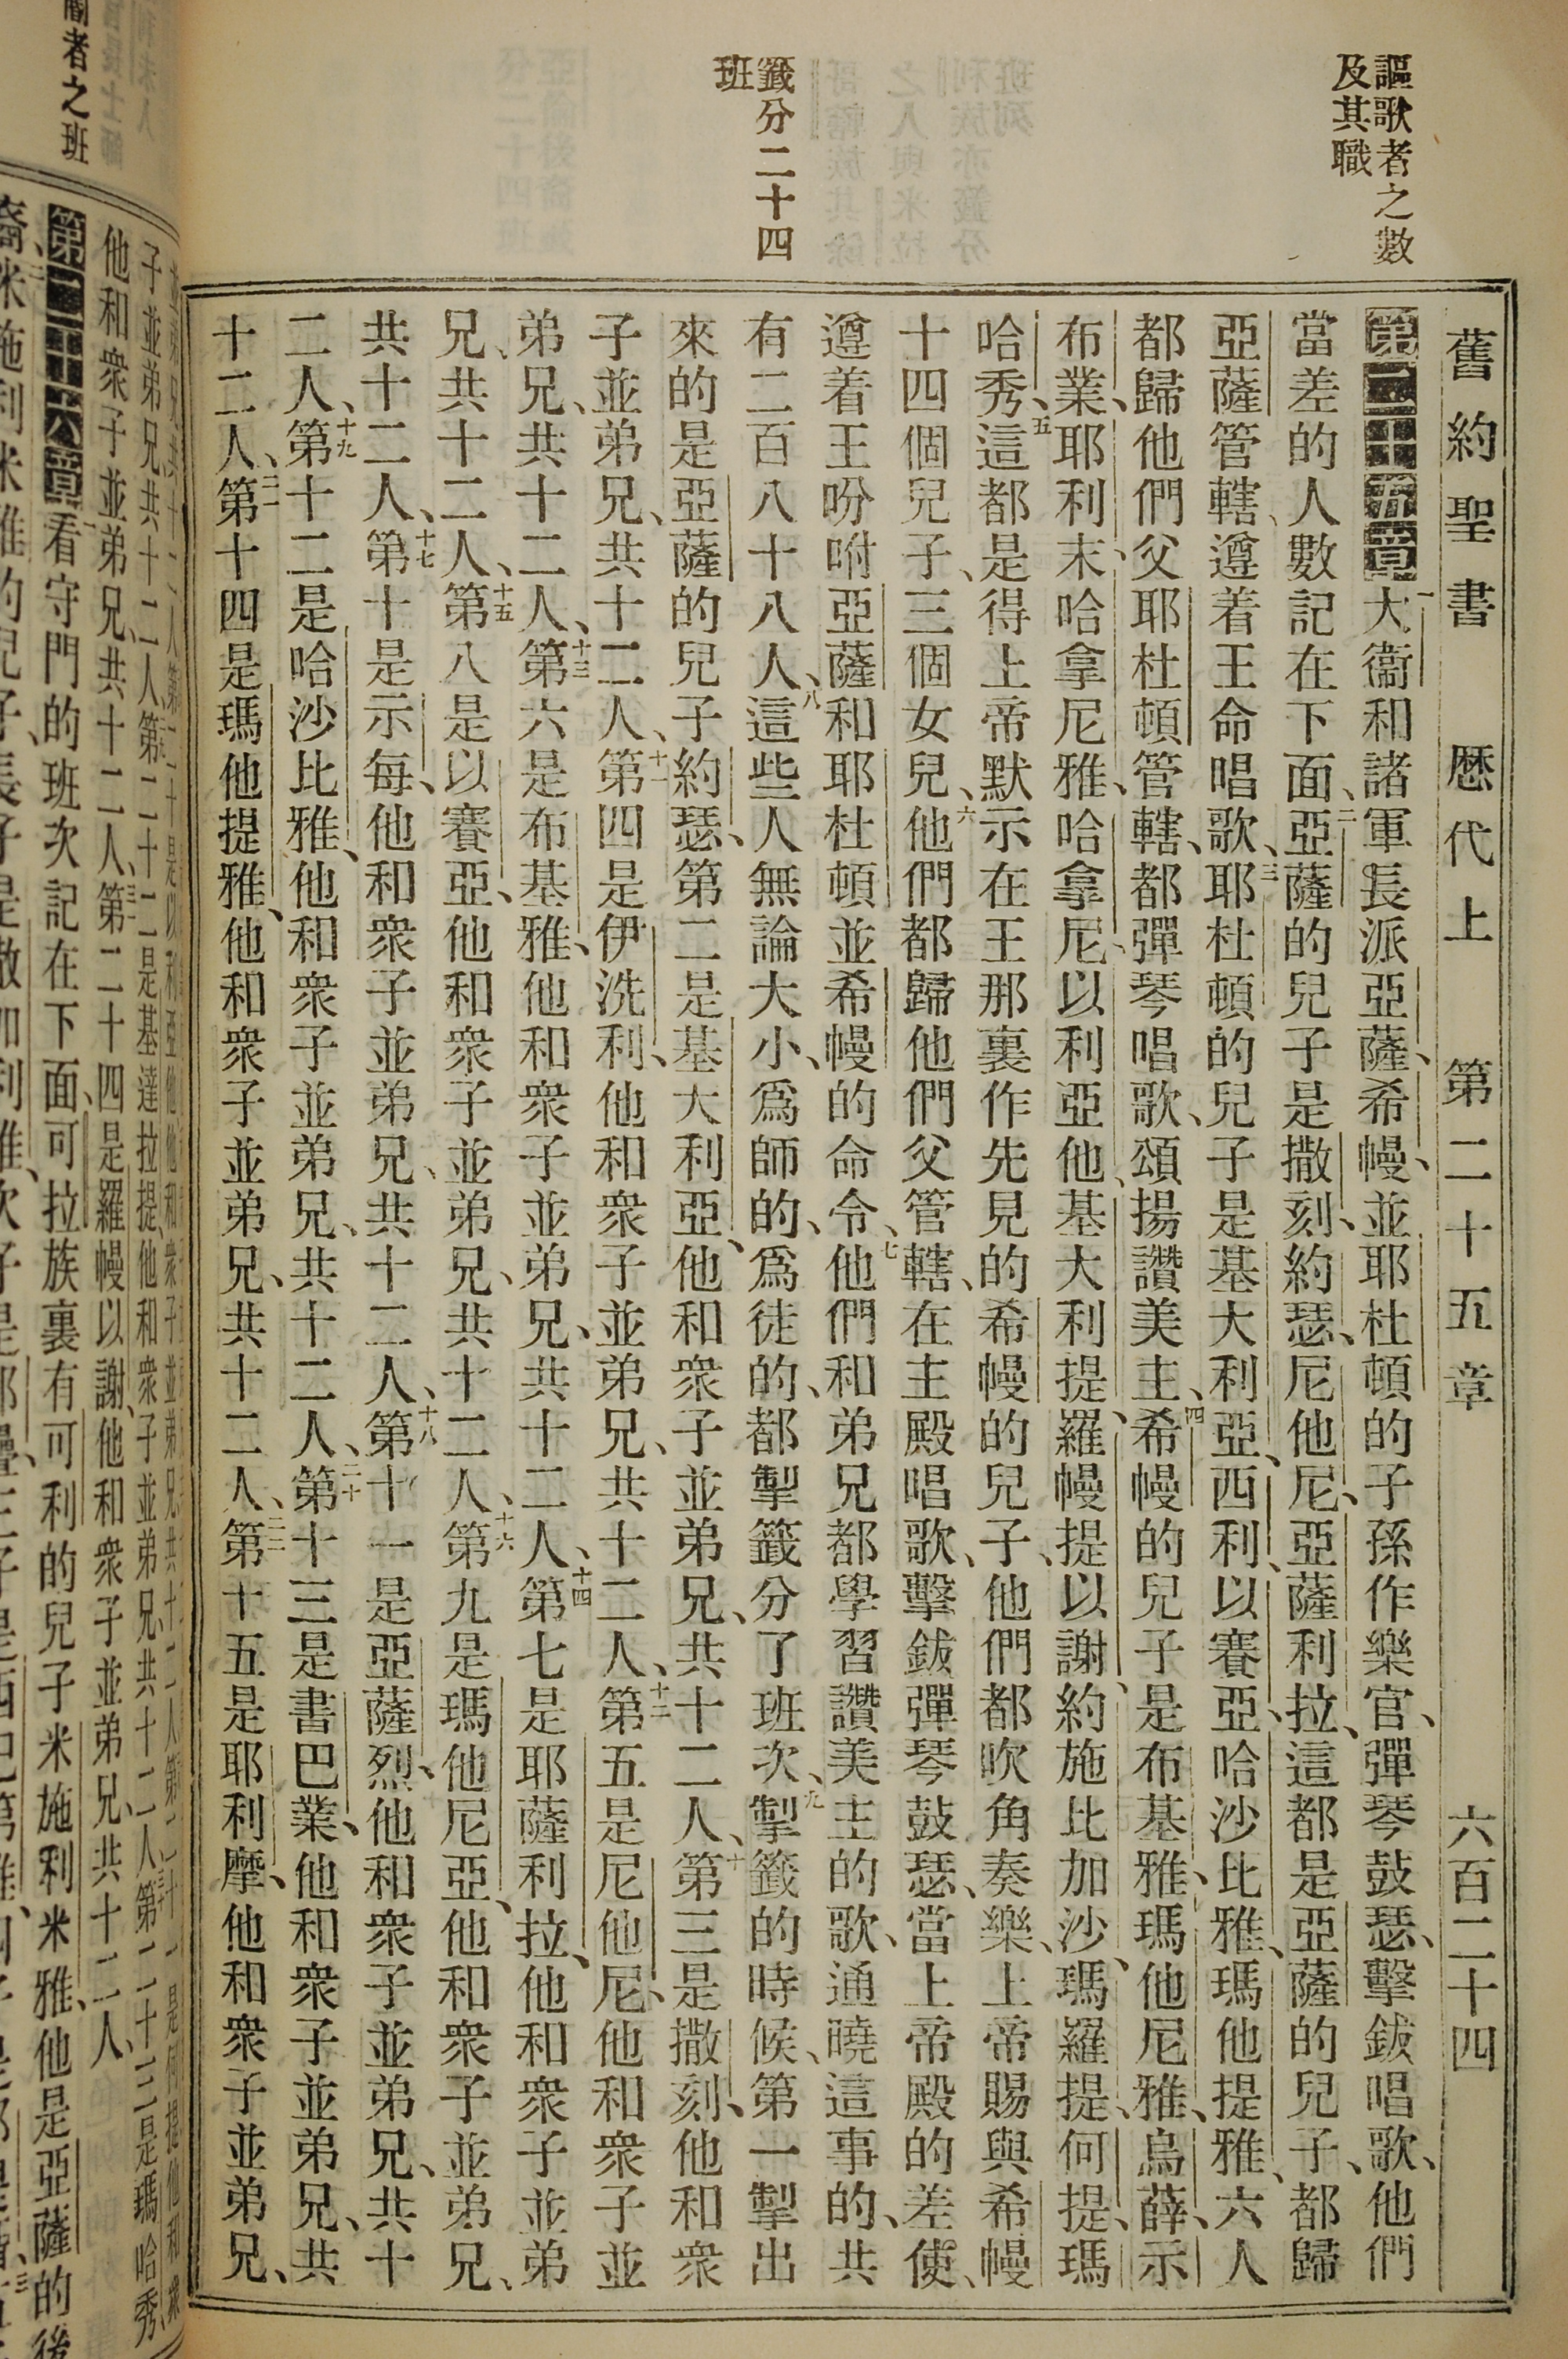 謳歌者之數
及其職
籤分二十四
班
舊約聖書 歷代上 第二十五章 六百二十四
第二十五章一大衞和諸軍長派亞薩、希幔、並耶杜頓的子孫作樂官、彈琴鼓瑟、擊鈸唱歌、他們
當差的人數記在下面、二亞薩的兒子是撒刻、約瑟、尼他尼、亞薩利拉、這都是亞薩的兒子、都歸
亞薩管轄、遵着王命唱歌、三耶杜頓的兒子是基大利亞、西利、以賽亞、哈沙比雅、瑪他提雅、六人
都歸他們父耶杜頓管轄、都彈琴唱歌、頌揚讚美主、四希幔的兒子是布基雅、瑪他尼雅、烏薛、示
布業、耶利末、哈拿尼雅、哈拿尼、以利亞他、基大利提、羅幔提以謝、約施比加沙、瑪羅提、何提、瑪
哈秀、五這都是得上帝默示在王那裏作先見的希幔的兒子、他們都吹角奏樂、上帝賜與希幔
十四個兒子、三個女兒、六他們都歸他們父管轄、在主殿唱歌、擊鈸彈琴鼓瑟、當上帝殿的差使、
遵着王吩咐亞薩和耶杜頓並希幔的命令、七他們和弟兄都學習讚美主的歌、通曉這事的、共
有二百八十八人、八這些人無論大小、爲師的、爲徒的、都掣籤分了班次、九掣籤的時候、第一掣出
來的是亞薩的兒子約瑟、第二是基大利亞、他和衆子並弟兄、共十二人、十第三是撒刻、他和衆
子並弟兄、共十二人、十一第四是伊洗利、他和衆子並弟兄、共十二人、十二第五是尼他尼、他和衆子並
弟兄、共十二人、十三第六是布基雅、他和衆子並弟兄、共十二人、十四第七是耶薩利拉、他和衆子並弟
兄、共十二人、十五第八是以賽亞、他和衆子並弟兄、共十二人、十六第九是瑪他尼亞、他和衆子並弟兄、
共十二人、十七第十是示每、他和衆子並弟兄、共十二人、十八第十一是亞薩烈、他和衆子並弟兄、共十
二人、十九第十二是哈沙比雅、他和衆子並弟兄、共十二人、二十第十三是書巴業、他和衆子並弟兄、共
十二人、二一第十四是瑪他提雅、他和衆子並弟兄、共十二人、二二第十五是耶利摩、他和衆子並弟兄、
者之班
子並弟兄、共十二人、第二十二是基達拉提、他和衆子並弟兄、共十二人、第二十三是瑪哈秀、
他和衆子並弟兄、共十二人、第二十四是羅幔以謝、他和衆子並弟兄、共十二人、
第二十六章看守門的班次記在下面、可拉族裏有可利的兒子米施利米雅、他是亞薩的後